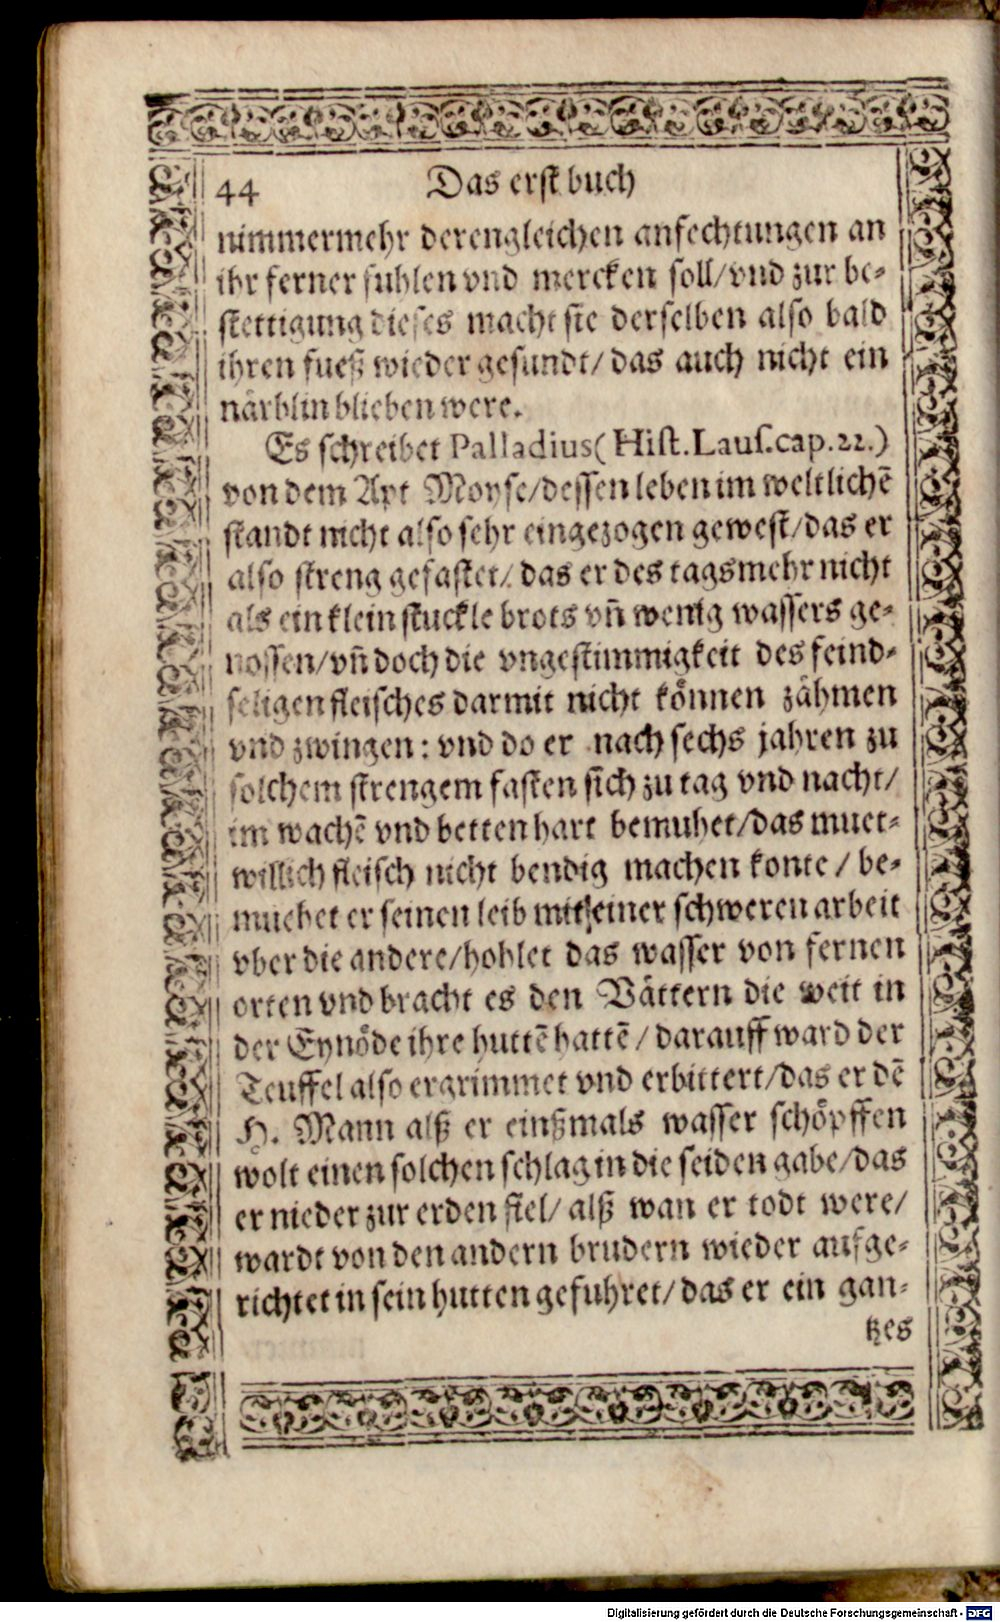 44 Das erst buch
nimmermehr derengleichen anfechtungen an
ihr ferner fuhlen vnd mercken soll/vnd zur be-
stettigung dieses macht sie derselben also bald
ihren fueß wieder gesundt/das auch nicht ein
närblin blieben were.
Es schreibet Palladius(Hist.Laus.cap.22.)
von dem Apt Moyse/dessen leben im weltlichẽ
standt nicht also sehr eingezogen gewest/das er
also streng gefastet/das er des tags mehr nicht
als ein klein stuckle brots vñ wenig wassers ge-
nossen/vñ doch die vngestimmigkeit des feind-
seligen fleisches darmit nicht können zähmen
vnd zwingen: vnd do er nach sechs jahren zu
solchem strengem fasten sich zu tag vnd nacht/
im wachẽ vnd betten hart bemuhet/das muet-
willich fleisch nicht bendig machen konte/be-
muehet er seinen leib mit einer schweren arbeit
vber die andere/hohlet das wasser von fernen
orten vnd bracht es den Vättern die weit in
der Eynöde ihre huttẽ hattẽ/darauff ward der
Teuffel also ergrimmet vnd erbittert/das er dẽ
H. Mann alß er einßmals wasser schöpffen
wolt einen solchen schlag in die seiden gabe/das
er nieder zur erden fiel/alß wan er todt were/
wardt von den andern brudern wieder aufge-
richtet in sein hutten gefuhret/das er ein gan-
tzes
Digitalisierung gefördert durch die Deutsche Forschungsgemeinschaft - DFG